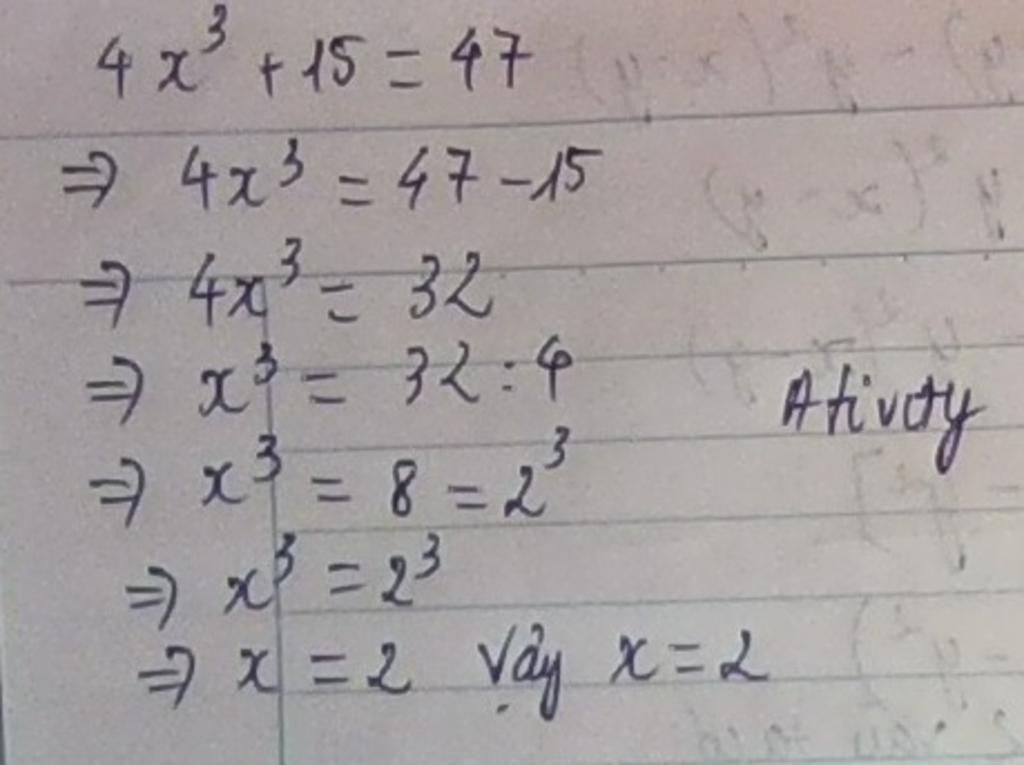 4x³ + 15 = 47
⇒ 4x³ = 47 - 15
⇒ 4x³ = 32
⇒ x³ = 32 : 4
Ativity
⇒ x³ = 8 = 2³
⇒ x³ = 2³
⇒ x = 2 Vậy x = 2